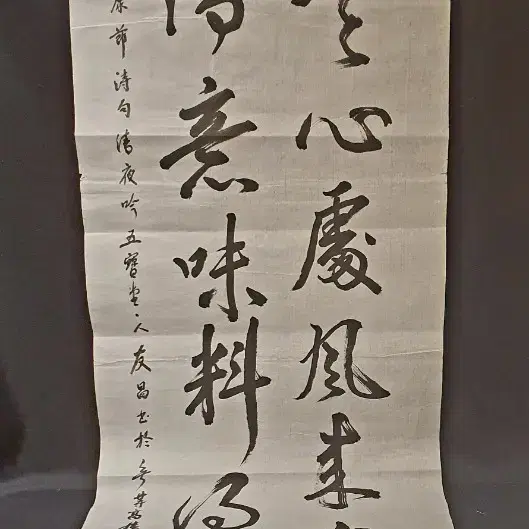 天心處風來
清意味料得
康節詩句清夜吟五寶堂主人友昌書於